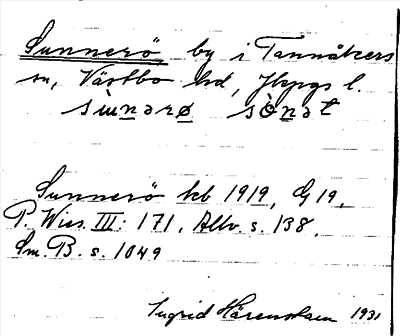 Sunnerö by i Tannåkers
sn, Västbo hd, Jkpgs l.
sɯnərø sònət
Sunnerö kb 1919, G 19,
P. Wies. III: 171, Allv. s. 138,
Sm. B. s. 1049
Ingrid Härenstam 1931